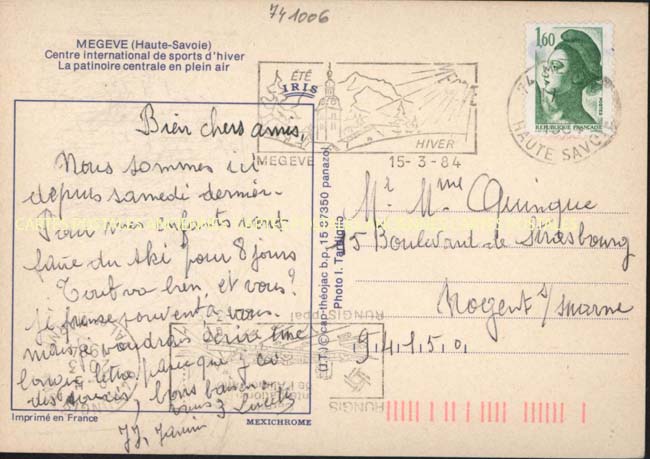 741006
MEGEVE (Haute-Savoie)
Centre international de sports d'hiver
La patinoire centrale en plein air
IRIS
ÉTÉ
HIVER
MEGEVE
15-3-84
1,60
POSTES
REPUBLIQUE FRANÇAISE
HAUTE SAVOIE
Bien chers amis,
Nous sommes ici
depuis samedi dernier.
Pour nos enfants vont
faire du ski pour 8 jours
Tout va bien, et vous?
je pense souvent à vous
mais voudrais écrire une
longue lettre, parce que j'ai
des soucis, bons baisers
JJ. Janin
Mr Mme Quinque
5 Boulevard de Strasbourg
Nogent s/ marne
94150
cap-théojac b.p. 15 87350 panazol
Photo I. Tartiglio
RUNGIS ppal
RUNGIS
Imprimé en France
MEXICHROME